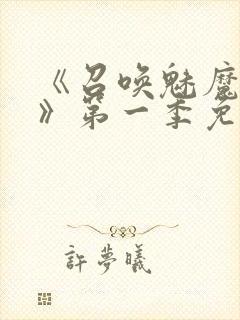 《召唤魅魔
》第一季免
許夢曦